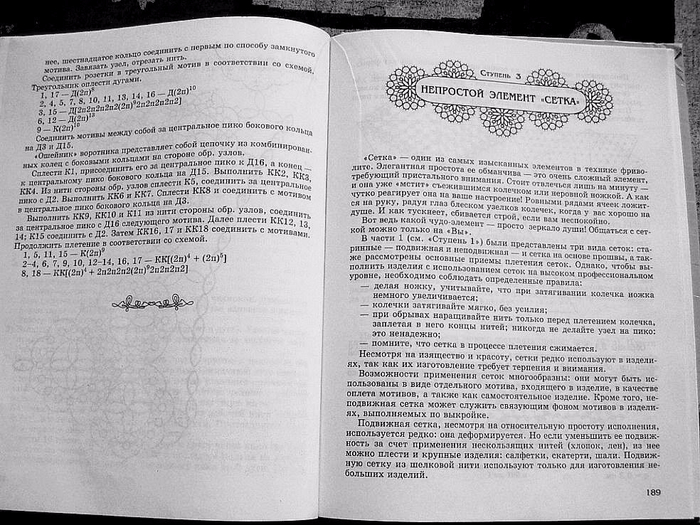 нее, шестнадцатое кольцо соединить с первым по способу замкнутого
мотива. Завязать узел, отрезать нить.
Соединить розетки в треугольный мотив в соответствии со схемой.
Треугольник оплести дугами.
1, 17 — Д(2п)⁹
2, 4, 5, 7, 8, 10, 11, 13, 14, 16 — Д(2п)¹⁰
3, 15 — Д[2п2п2п2(2п)⁹2п2п2п2]
6, 12 — Д(2п)¹³
9 — К(2п)¹⁰
Соединить мотивы между собой за центральное пико бокового кольца
на Д3 и Д15.
«Ошейник» воротника представляет собой цепочку из комбинирован-
ных колец с боковыми кольцами на стороне обр. узлов.
Сплести К1, присоединить его за центральное пико к Д16, а конец —
к центральному пико бокового кольца на Д15. Выполнить КК2, КК3,
КК4. Из нити стороны обр узлов сплести К5, соединить за центральное
пико с Д2. Выполнить КК6 и КК7. Сплести КК8 и соединить с мотивом
в центральное пико бокового кольца на Д3.
Выполнить КК9, КК10 и К11 из нити стороны обр. узлов, соединить
за центральное пико с Д16 следующего мотива. Далее плести КК12, 13,
14; К15 соединить с Д2. Затем КК16, 17 и КК18 соединить с мотивами.
Продолжить плетение в соответствии со схемой.
1, 5, 11, 15 — К(2п)⁹
2–4, 6, 7, 9, 10, 12–14, 16, 17 — КК[(2п)⁴ + (2п)⁵]
8, 18 — КК[(2п)⁴ + 2п2п2п2(2п)⁹2п2п2п2]
Ступень 3
НЕПРОСТОЙ ЭЛЕМЕНТ «СЕТКА»
«Сетка» — один из самых изысканных элементов в технике фриво-
лите. Элегантная простота ее обманчива — это очень сложный элемент,
требующий пристального внимания. Стоит отвлечься лишь на минуту —
и она уже «мстит» съежившимся колечком или неровной ножкой. А как
чутко реагирует она на ваше настроение! Ровными рядами ячеек ложит-
ся на руку, радуя глаз блеском узелков колечек, когда у вас хорошо на
душе. И как тускнеет, сбивается строй, если вам неспокойно.
Вот ведь какой чудо-элемент — просто зеркало души! Общаться с сет-
кой можно только на «Вы».
В части 1 (см. «Ступень 1») были представлены три вида сеток: ста-
ринные — подвижная и неподвижная — и сетка на основе прошвы, а так-
же рассмотрены основные приемы плетения сеток. Однако, чтобы вы-
полнить изделия с использованием сеток на высоком профессиональном
уровне, необходимо соблюдать определенные правила:
— делая ножку, учитывайте, что при затягивании колечка ножка
немного увеличивается;
— колечки затягивайте мягко, без усилия;
— при обрывах наращивайте нить только перед плетением колечка,
заплетая в него концы нитей; никогда не делайте узел на пико:
это ненадежно;
— помните, что сетка в процессе плетения сжимается.
Несмотря на изящество и красоту, сетки редко используют в издели-
ях, так как их изготовление требует терпения и внимания.
Возможности применения сеток многообразны: они могут быть ис-
пользованы в виде отдельного мотива, входящего в изделие, в качестве
оплета мотивов, а также как самостоятельное изделие. Кроме того, не-
подвижная сетка может служить связующим фоном мотивов в издели-
ях, выполняемых по выкройке.
Подвижная сетка, несмотря на относительную простоту исполнения,
используется редко: она деформируется. Но если уменьшить ее подвиж-
ность за счет применения нескользящих нитей (хлопок, лен), из нее
можно плести и крупные изделия: салфетки, скатерти, шали. Подвиж-
ную сетку из шелковой нити используют только для изготовления не-
больших изделий.
189